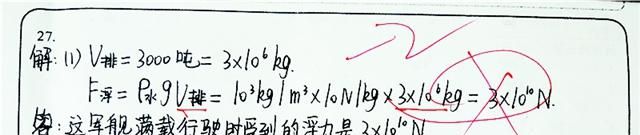 27.
解:(1) V排=3000吨=3×10⁶kg.
F浮=ρ水gV排=10³kg/m³×10N/kg×3×10⁶kg=3×10¹⁰N.
答:这军舰满载行驶时受到的浮力是3×10¹⁰N